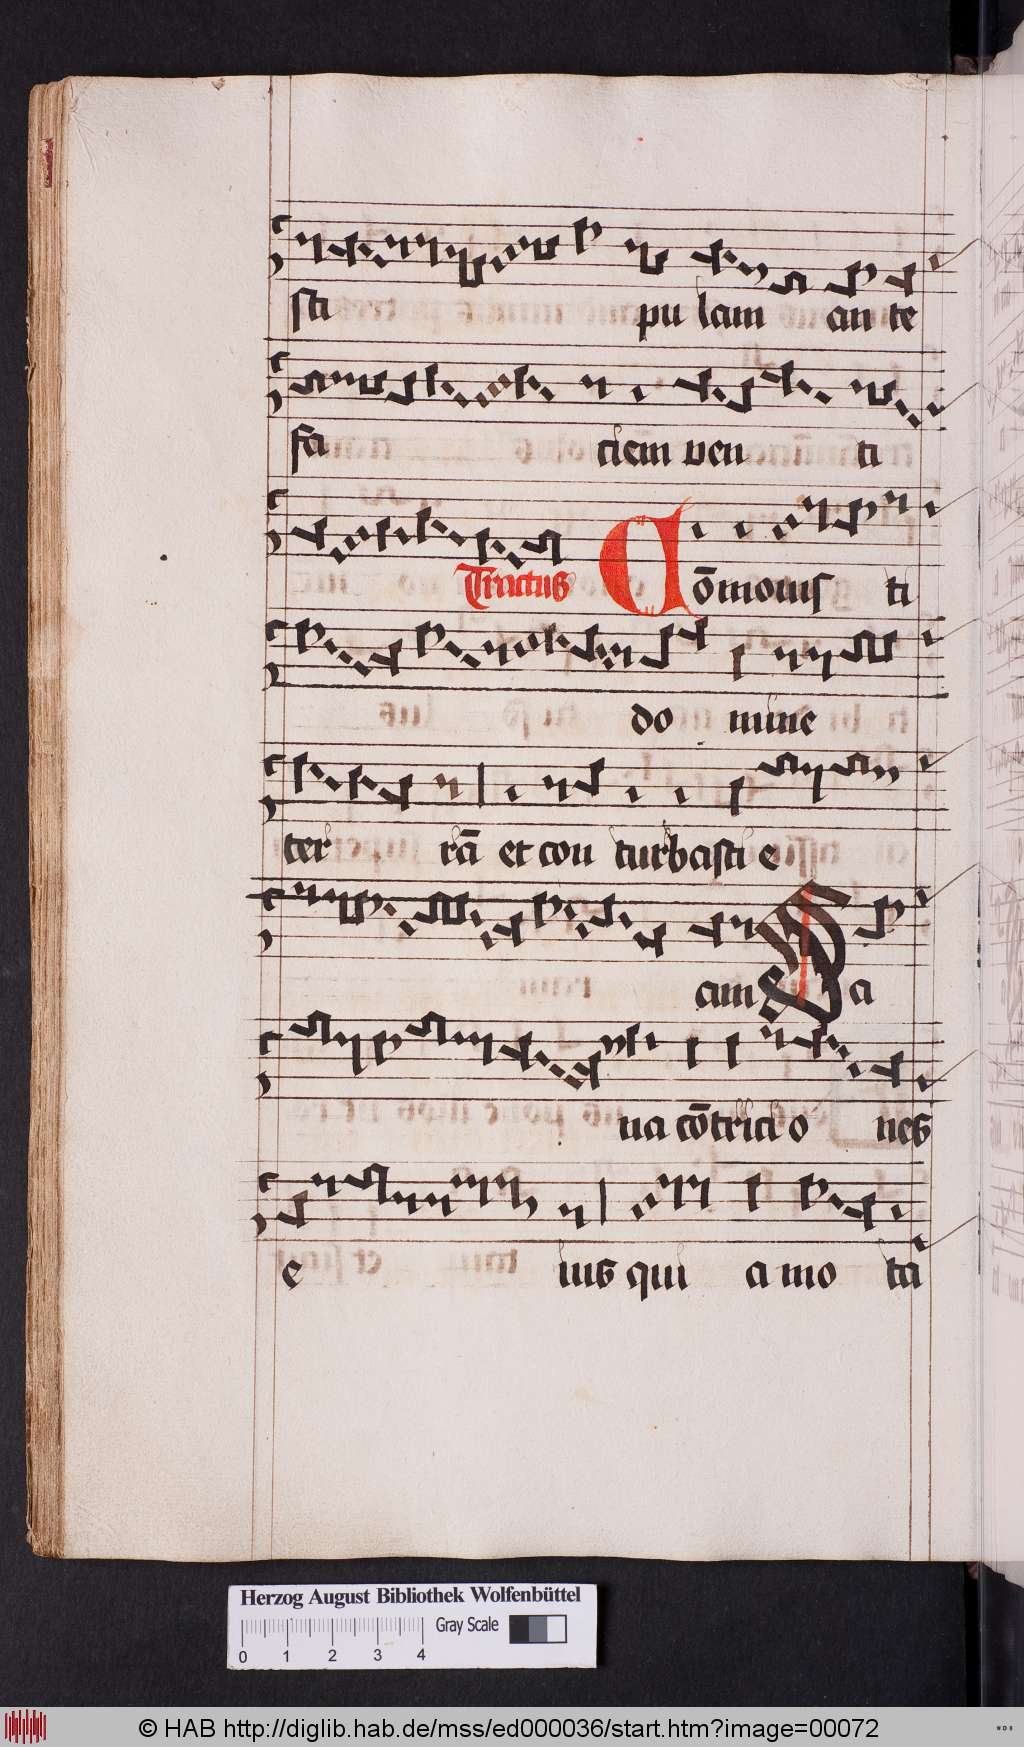 sti pu lam an te
fa ciem ven ti
Tractus Cōmouis ti
do mine
ter rā et con turbasti e
am Sa
na cōtrici o nes
e ius qui a mo ta
Herzog August Bibliothek Wolfenbüttel
Gray Scale
0 1 2 3 4
© HAB http://diglib.hab.de/mss/ed000036/start.htm?image=00072